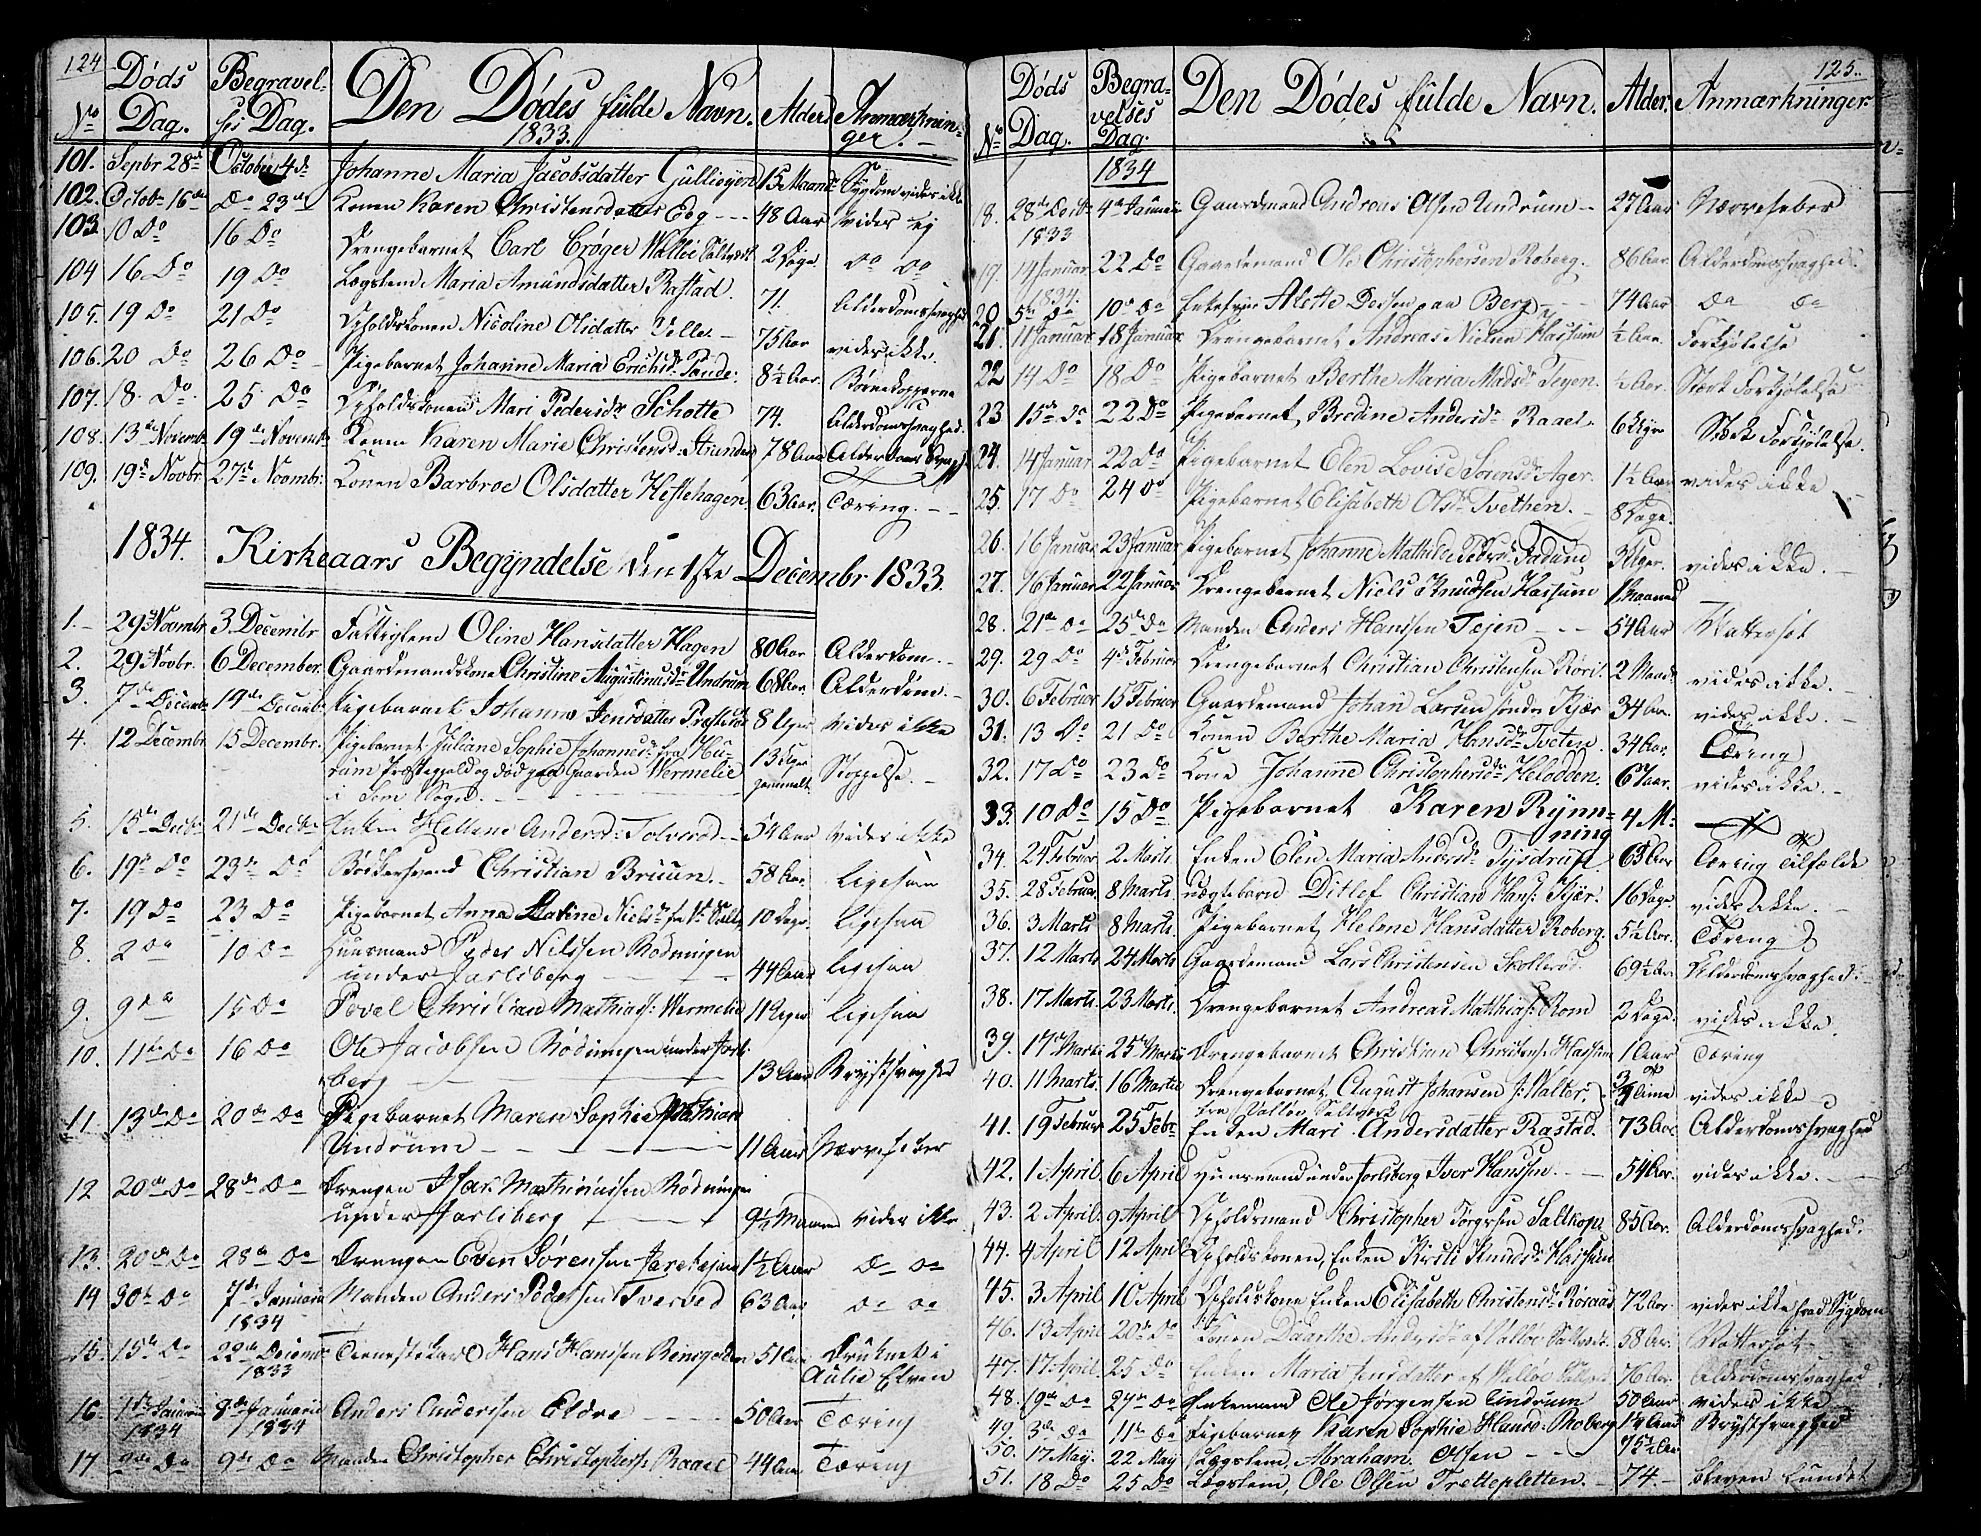 124
Døds Dag. Begravelses Dag. Den Dødes fulde Navn. Alder Anmærkninger.
No 1833.
101. Septbr 28de October 4de Johanne Maria Jacobsdatter Gullies 15 Maand Sygdom vides ikke
102. Octob 16de Do 23de Konen Karen Christensdatter Eeg 48 Aar vides ej
103. 10 Do 16 Do Drengebarnet Carl Crøger Walløe Saltværk 2 Dage Do Do
104 16 Do 19 Do Lægslem Maria Amundsdatter Rastad. 71. Alderdomssvaghed
105. 19 Do 21 Do Opholdskonen Nicoline Olsdatter Velle. 75 Aar vides ikke.
106. 20 Do 26 Do Pigebarnet Johanne Maria Erichsdr Rande. 8½ Aar. Børnekopperne
107. 18 Do. 25 Do Opholdskonen Mari Pedersdr Schotte 74. Alderdomssvaghed.
108. 13de Novembr 19de Novembr Konen Karen Marie Christensd. Strunden 78 Aar Alderdoms Svagh
109. 19de Novbr. 27de Novmbr. Konen Barbroe Olsdatter Heslehagen. 63 Aar. Tæring.
1834. Kirkeaars Begyndelse den 1ste Decembr 1833.
1. 29 Novmbr. 3 Decembr Fattiglem Oline Hansdatter Hagen 80 Aar Alderdom.
2. 29 Novbr. 6 December. Gaardmandskone Christine Augustinusdr Undrum 68 Aar. Alderdom.
3. 7de Decembr 14de Decembr Pigebarnet Johanne Jensdatter 8 Uger vides ikke
4. 12 Decembr 15 Decembr. Pigebarnet Juliane Sophie Johannesdr fra Hurum Præstegjeld og død paa Gaarden Wermelie i Sem Sogn. 13 Uger gammelt. Stoppelse.
5. 15de Decbr. 21de Decbr Enken Hellene Andersd: Tolvsrød 54 Aar vides ikke
6. 19de Do 23de Do Bødkersvend Christian Bruun. 58 Aar. Ligesaa
7. 19 Do 23 Do Pigebarnet Anna Matine Nielsdr 10 Dage. Ligesaa
8. 2 Do 10 Do Huusmand Peder Nilssen Rødningen under Jarlsberg 44 Aar Ligesaa
9. 9de Do 15 Do Povel Christian Mathias: Wermelie 11 Uger Ligesaa
10. 11te Do 16 Do Ole Jacobsen Rødningen under Jarlsberg 13 Aar Brystsvaghed
11. 13de Do 20de Do Pigebarnet Maren Sophie Mathias Undrum 11 Aar Nervefeber
12 20de Do 28de Do Drengen Isac Mathiassen Rødningen under Jarlsberg 9½ Maaned vides ikke
13. 20de Do 28de Do Drengen Even Sørensen 1½ Aar Do Do
14 30te Do 7de Januari 1834 Manden Anders Pedersen Tverved 63 Aar Do Do
15. 15de Do 22de Decembr 1833 Tjenestekarl Hans Hanssen 51 Aar Druknet i Aulie Elven
16. 1ste Januari 1834 8de Januari 1834 Anders Andersen Eldre 50 Aar Tæring
17 2de Do 9de Do Manden Christopher Christophers: Raael 44 Aar Tæring
125.
Døds Dag. Begravelses Dag. Den Dødes fulde Navn. Alder. Anmærkninger.
No
1834
18. 28de Decbr 1833 4de Januar Gaardmand Andreas Olsen Undrum 27 Aar Nervefeber
19. 14 Januar 1834. 22 Do Gaardemand Ole Christophersen Roberg. 86 Aar. Alderdomssvaghed.
20 5te Do 10de Do Enkefrue Alette paa Berg 74 Aar Do Do
21. 11 Januar. 18 Januar Drengebarnet Andreas Nielsen Hassum ½ Aar. Forkjølelse
22 14 Do 18 Do Pigebarnet Berthe Maria Madsd: Tegen. ½ Aar. Stærk Forkjølelse
23 15de Do 22 Do Pigebarnet, Bredine Andersdr Raael. 6 Uger Stærk Forkjølelse.
24. 14 Januar. 22 Do Pigebarnet Elen Lovise Sørensd: Ager. 1½ Aar vides ikke
25. 17 Do 24 Do Pigebarnet Elisabeth Olsdr Tvethen. 8 Dage.
26. 16 Januar 23 Januar Pigebarnet Johanne Mathilde 3 Uger. vides ikke.
27. 16 Januar 22 Januar Drengebarnet Niels Knudsen Hassum 1 Maaned
28. 21de Do 25de Do Manden Anders Hanssen Tejen 54 Aar Vattersot
29. 29 Do 4de Februar Drengebarnet Christian Christensen 2 Maan. vides ikke.
30. 6 Februar 15 Februar Gaardemand Johan Larsen søndre Kjær 34 Aar. vides ikke.
31. 13 Do 21 Do Konen Berthe Maria Hansdr Tveten. 34 Aar. Tæring
32. 17 Do 23 Do Kone Johanne Christophersdr Helodden. 67 Aar. vides ikke.
33. 10 Do 15 Do Pigebarnet Karen Rynning 4 M:
34. 24 Februar 2 Marts. Enken Elen Maria Andersdr 63 Aar Tæring Tilfælde
35. 28 Februar 8 Marts uægtebarn Ditlef Christian Hans: Kjær. 16 Dage. vides ikke.
36. 3 Marts 8 Marts. Pigebarnet Helene Hansdatter Roberg. 5½ Aar. Tæring
37. 12 Marts 24 Marts Gaardemand Lars Christensen Skollerød. 69½ Aar. Alderdomssvaghed.
38. 17 Marts. 23 Marts. Drengebarnet Andreas Matthias: Rom 2 Dage. vides ikke.
39. 14 Marts 25de Marts Drengebarnet Christian Christens: Hassum 1 Aar Tæring
40. 11 Marts. 16 Marts Drengebarnet August Johansen fra Valløe Saltværk ¾ Time vides ikke
41. 19 Februar 25 Febr Enken Mari Andersdatter Rastad. 73 Aar Alderdomssvaghed
42. 1 April. 6 April Huusmand under Jarlsberg Iver Hanssen. 54 Aar. vides ikke.
43. 2 April. 9 April Opholdsmand Christopher Saltkop. 85 Aar. Alderdomssvaghed.
44. 4 April 12 April Opholdskonen, Enken Kirsti Knudsdr Hassum
45. 3 April 10 April Opholdskone Enken Elisabeth Christensdr 72 Aar. vides ikke hvad Sygdom
46. 13 April 20de Do Konen Dorthe Andersdr af Valløe Saltværk. 58 Aar. Vattersot
47. 17 April. 25 Do Enken Maria Jensdatter af Valløe 76 Aar. Alderdomssvaghed
48. 19de Do 27de Do Enkemand Ole Jørgensen Undrum 50 Aar vides ikke
49. 3de Do 11te Do Pigebarnet Karen Sophie Hansd: Roberg 1¼ Aar Brystsvaghed
50. 17 May. 22 May Lægslem, Abraham Olsen 75½ Aar
51. 18 Do 25 Do Lægslem, Ole Olsen Trettepletten. 74.